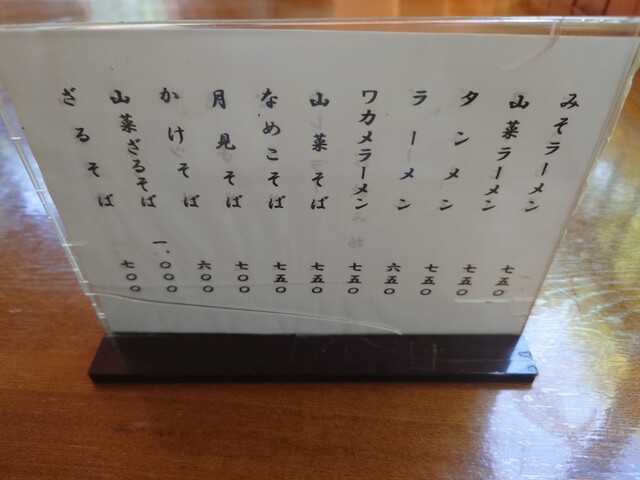 みそラーメン 七五〇
山菜ラーメン 七五〇
タンメン 七五〇
ラーメン 六五〇
ワカメラーメン 七五〇
山菜そば 七五〇
なめこそば 七五〇
月見そば 七〇〇
かけそば 六〇〇
山菜ざるそば 一、〇〇〇
ざるそば 七〇〇